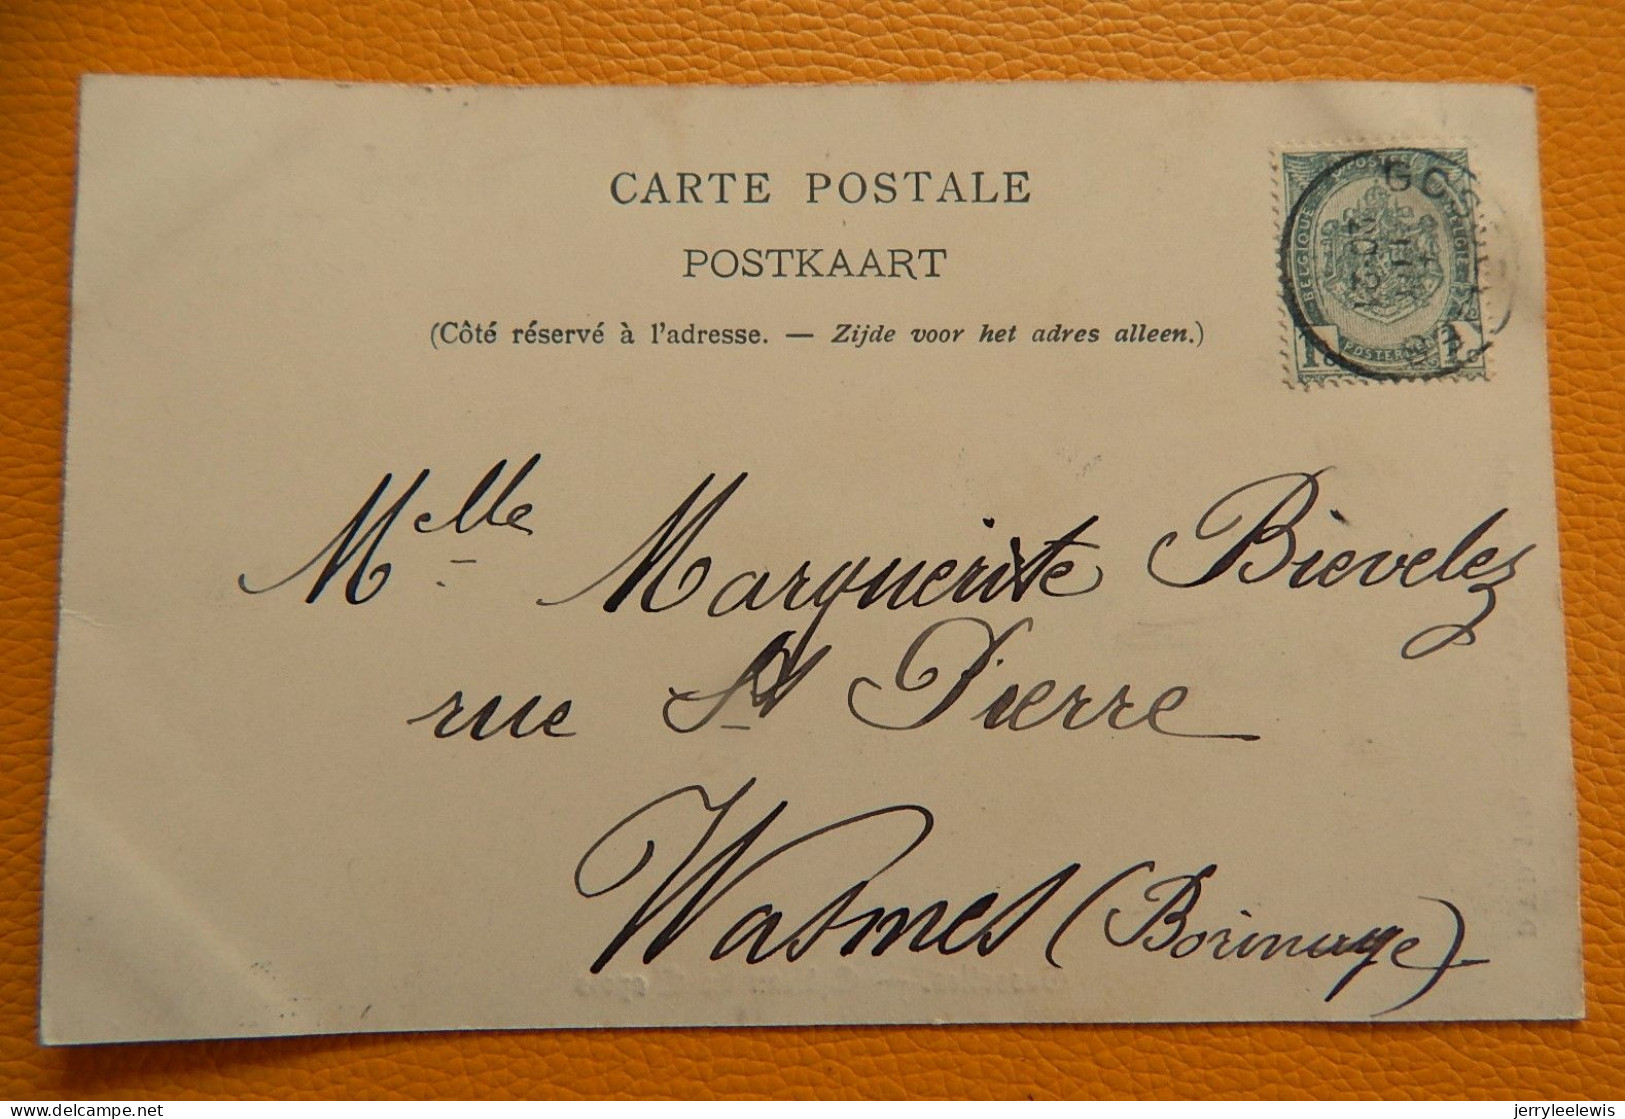 CARTE POSTALE
POSTKAART
(Côté réservé à l'adresse. — Zijde voor het adres alleen.)
BELGIQUE
BELGIË
POSTERIJEN
Mlle Marguerite Bievelez
rue St Pierre
Wasmes (Borinage)
jerryleelewis